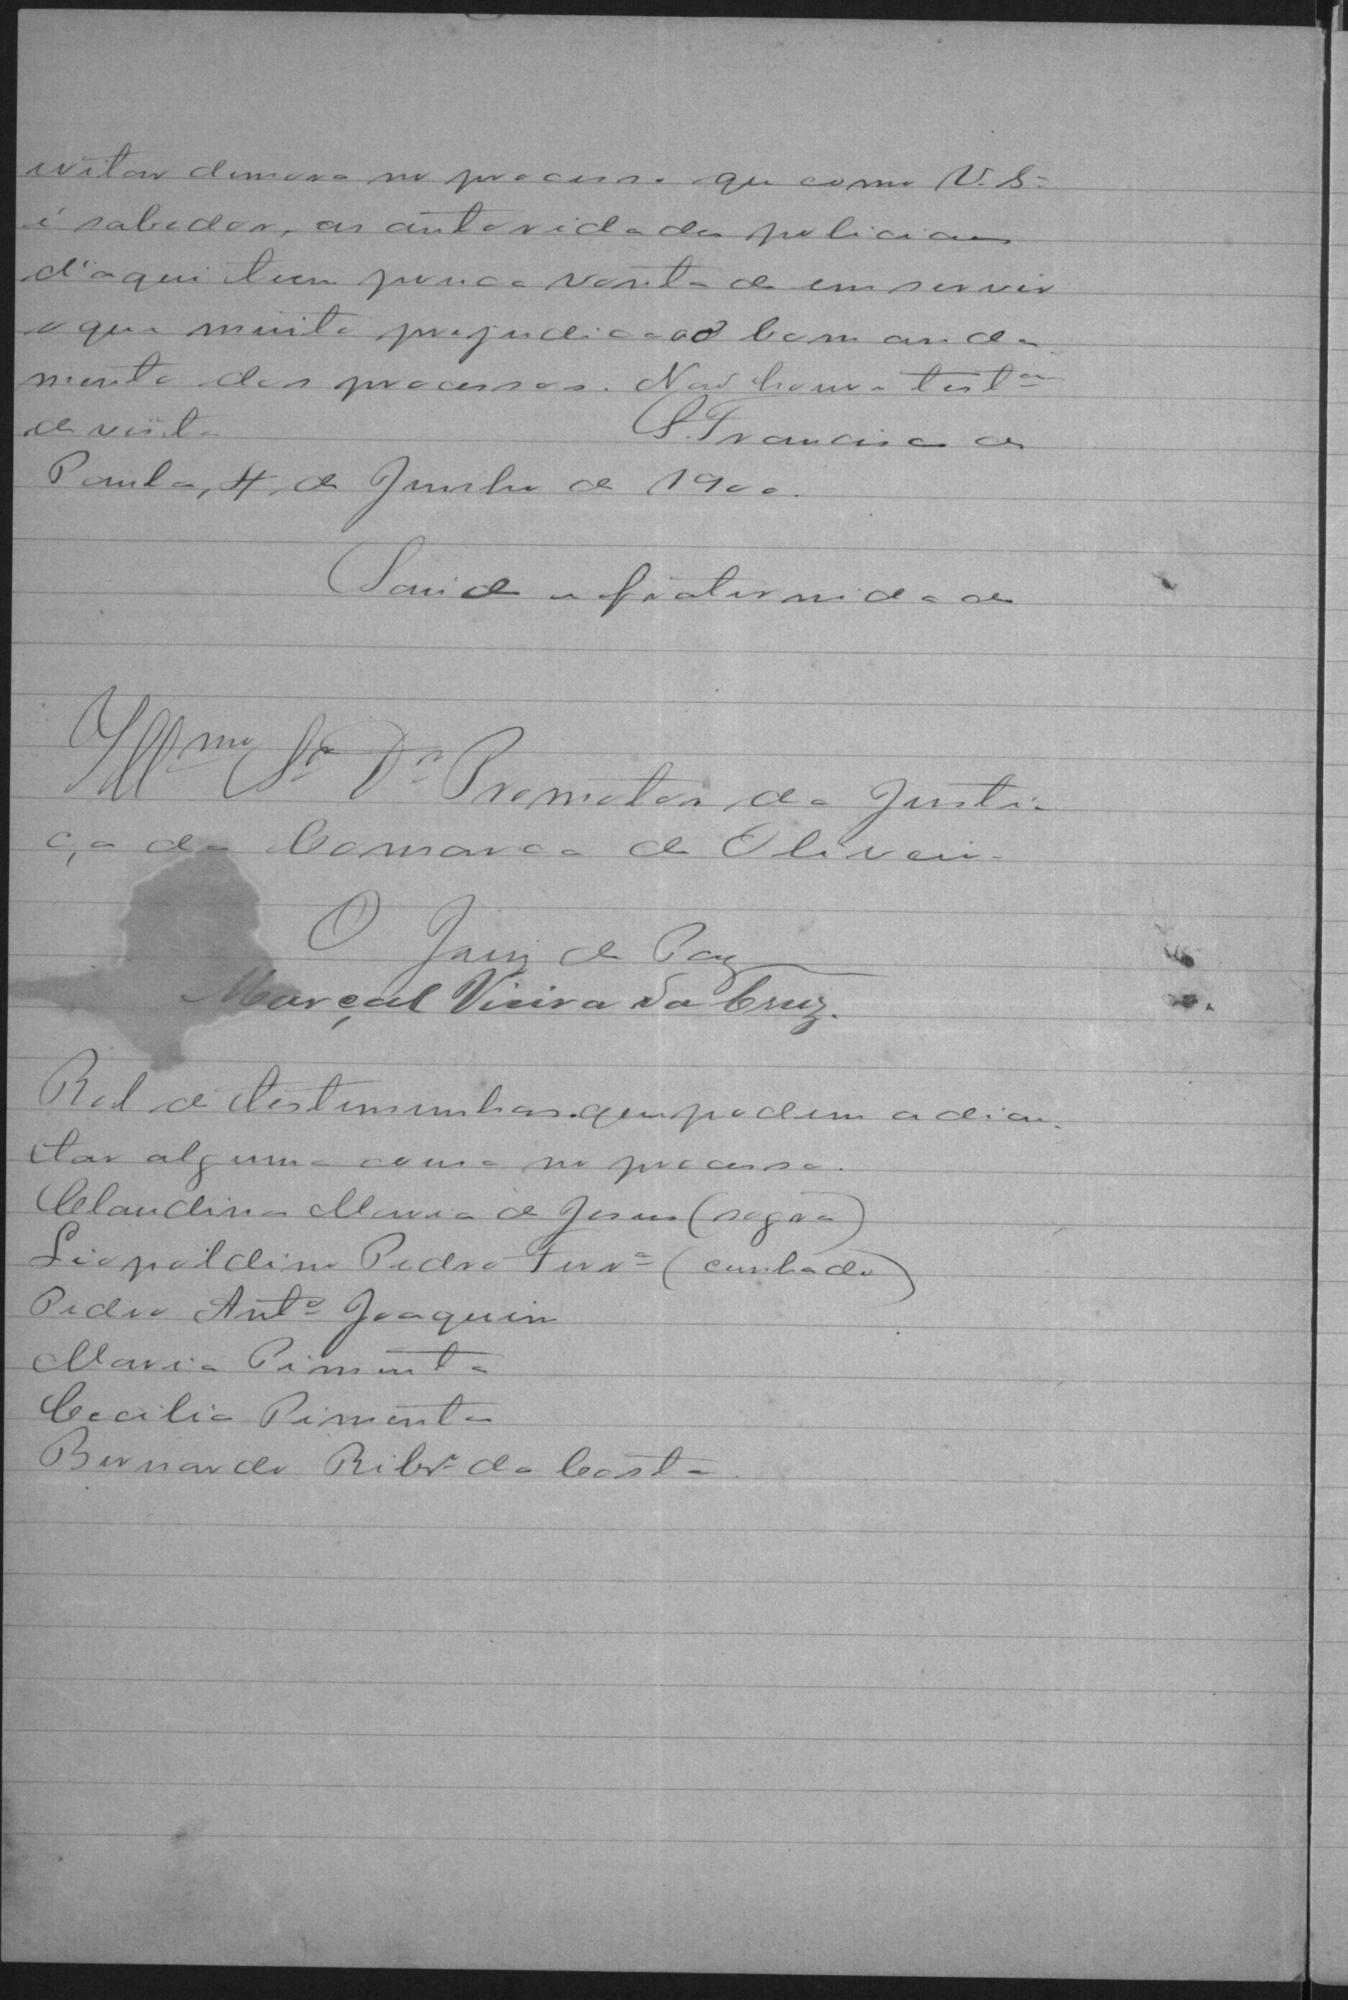 evitar demora no processo que como V. S.ª
é sabedor, as autoridades policiaes
d'aqui teem pouca vontade em servir
o que muito prejudica ao bom anda-
mento dos processos. Não houve test.as
de vista S. Francisco de
Paula, 4, de Junho de 1900.
Saude e fraternidade
Illmo Sr. Dr. Promotor da Justi-
ça da Comarca de Oliveira
O Juiz de Paz
Marçal Vieira da Cruz.
Rol de testemunhas que podem adian-
tar alguma cousa no processo.
Claudina Maria de Jesus (sogra)
Liopoldino Pedro Ferr.ª (cunhado)
Pedro Ant.º Joaquim
Maria Pimenta
Cecilia Pimenta
Bernardo Ribr.º da Costa.